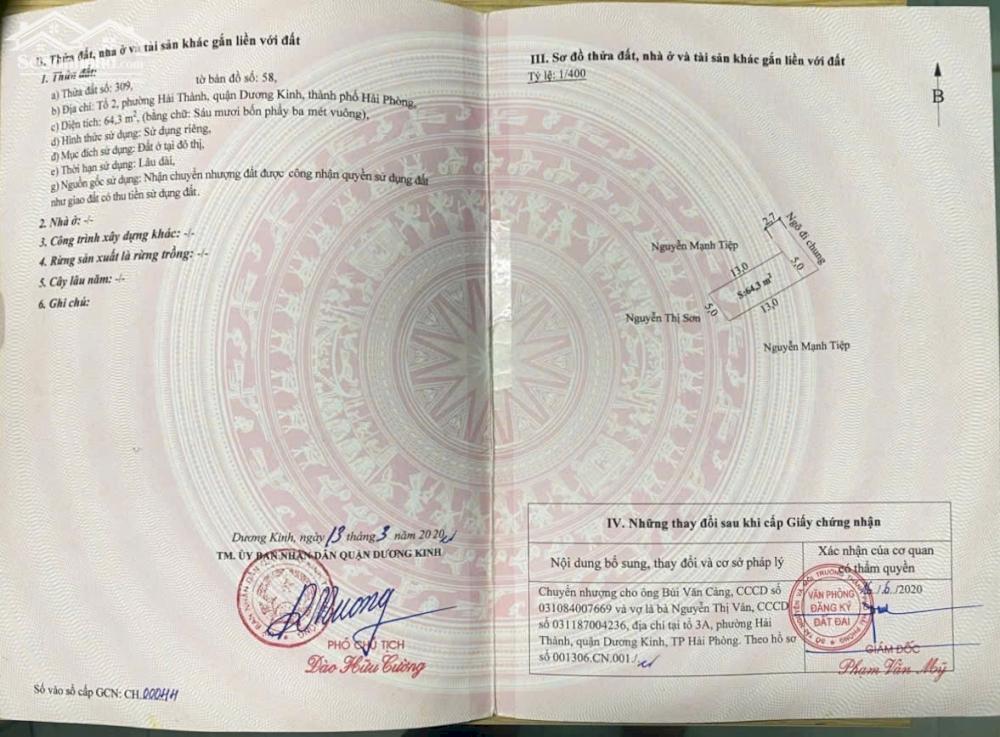 II. Thửa đất, nhà ở và tài sản khác gắn liền với đất
1. Thửa đất:
a) Thửa đất số: 309, tờ bản đồ số: 58,
b) Địa chỉ: Tổ 2, phường Hải Thành, quận Dương Kinh, thành phố Hải Phòng,
c) Diện tích: 64,3 m², (bằng chữ: Sáu mươi bốn phẩy ba mét vuông),
d) Hình thức sử dụng: Sử dụng riêng,
đ) Mục đích sử dụng: Đất ở tại đô thị,
e) Thời hạn sử dụng: Lâu dài,
g) Nguồn gốc sử dụng: Nhận chuyển nhượng đất được công nhận quyền sử dụng đất
như giao đất có thu tiền sử dụng đất.
2. Nhà ở: -/-
3. Công trình xây dựng khác: -/-
4. Rừng sản xuất là rừng trồng: -/-
5. Cây lâu năm: -/-
6. Ghi chú:
Dương Kinh, ngày 13 tháng 3 năm 2020
TM. ỦY BAN NHÂN DÂN QUẬN DƯƠNG KINH
PHÓ CHỦ TỊCH
Đào Hữu Cường
Số vào sổ cấp GCN: CH.
III. Sơ đồ thửa đất, nhà ở và tài sản khác gắn liền với đất
Tỷ lệ: 1/400
B
2,7
Ngõ đi chung
Nguyễn Mạnh Tiệp
13,0
5,0
S:64,3 m²
5,0
13,0
Nguyễn Thị Sơn
Nguyễn Mạnh Tiệp
IV. Những thay đổi sau khi cấp Giấy chứng nhận
Nội dung bổ sung, thay đổi và cơ sở pháp lý
Xác nhận của cơ quan
có thẩm quyền
Chuyển nhượng cho ông Bùi Văn Cảng, CCCD số
031084007669 và vợ là bà Nguyễn Thị Vân, CCCD
số 031187004236, địa chỉ tại tổ 3A, phường Hải
Thành, quận Dương Kinh, TP Hải Phòng. Theo hồ sơ
số 001306.CN.001./
/6/2020
VĂN PHÒNG
ĐĂNG KÝ
ĐẤT ĐAI
GIÁM ĐỐC
Phạm Văn Mỹ